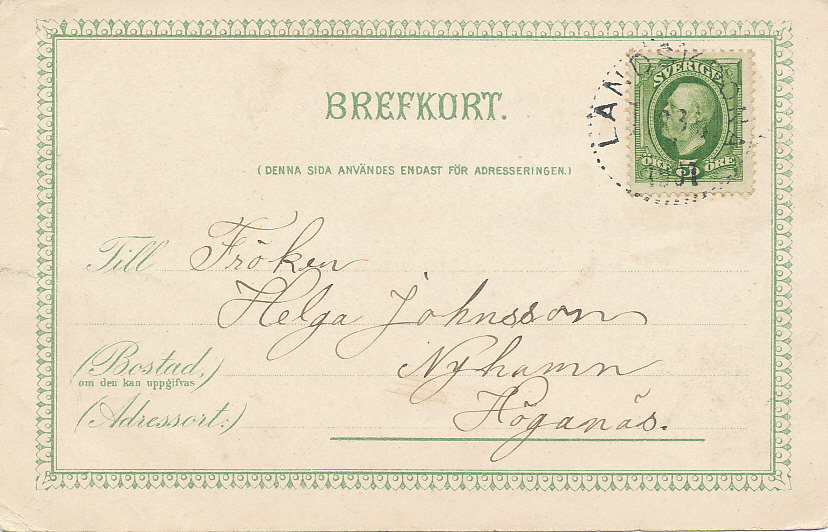 BREFKORT.
SVERIGE
LANDSKRONA
ÖRE 5 ÖRE
(DENNA SIDA ANVÄNDES ENDAST FÖR ADRESSERINGEN.)
Till Fröken
Helga Johnsson
(Bostad,) Nyhamn
om den kan uppgifvas
(Adressort:) Höganäs.